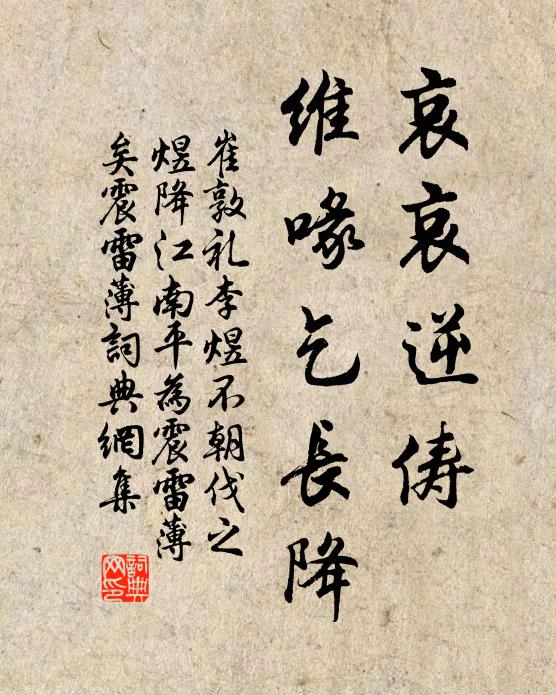 哀哀逆俦
維喙乞長降
崔敦礼李煜不朝伐之
煜降江南平為震雷薄
矣震雷薄詞典網集
詞典
网印